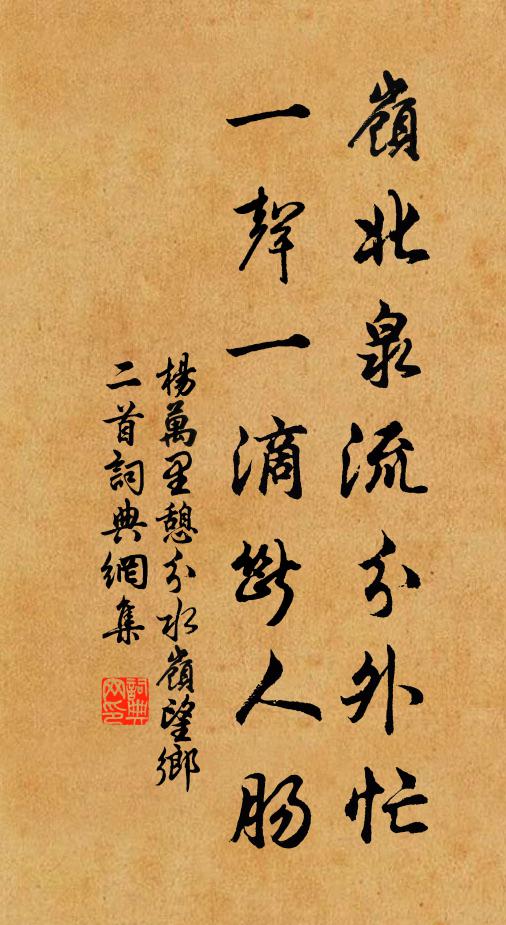 嶺北泉流分外忙
一聲一滴斷人腸
楊萬里憩分水嶺望鄉
二首詞典網集
詞典
网印